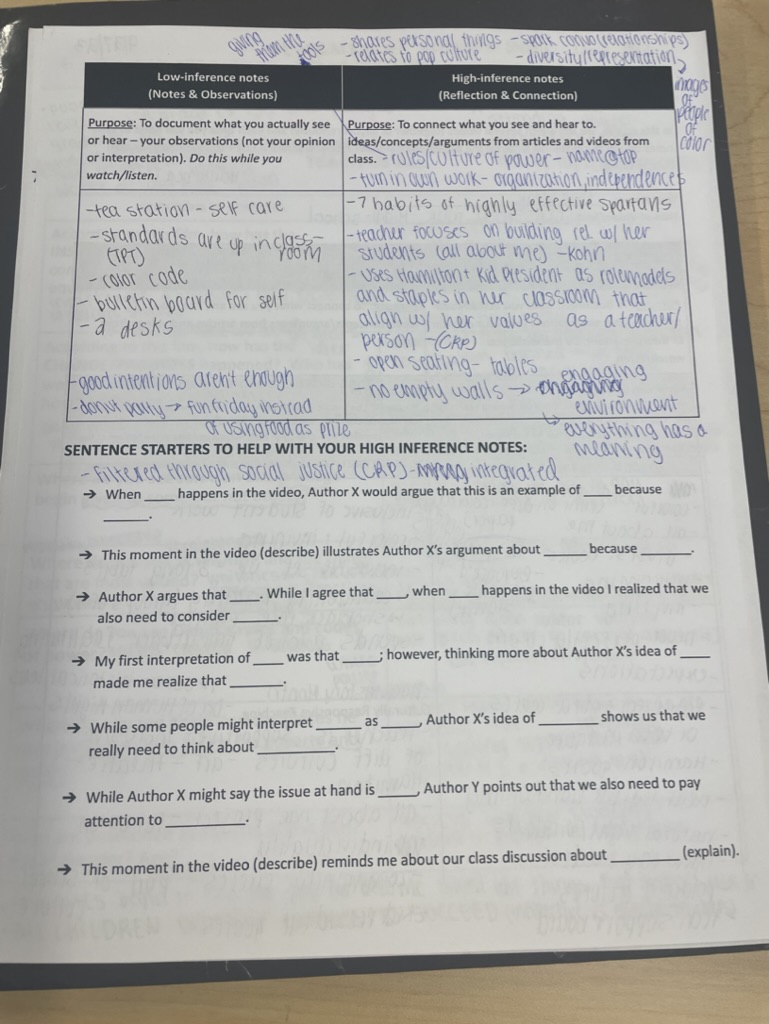 giving them the tools
- shares personal things - spark convo (relationships)
- relates to pop culture - diversity/representation
images of people of color
Low-inference notes
(Notes & Observations)
High-inference notes
(Reflection & Connection)
Purpose: To document what you actually see
or hear – your observations (not your opinion
or interpretation). Do this while you
watch/listen.
Purpose: To connect what you see and hear to.
ideas/concepts/arguments from articles and videos from
class. > rules/culture of power - name@top
- turn in own work - organization, independence
- tea station - self care
- standards are up in class-
room
(TPT)
- color code
- bulletin board for self
- 2 desks
- good intentions aren't enough
- donut party → fun friday instead
of using food as prize
- 7 habits of highly effective spartans
- teacher focuses on building rel. w/ her
students (all about me) - kohn
- uses Hamilton + Kid President as rolemodels
and staples in her classroom that
align w/ her values as a teacher/
person - (CRP)
- open seating - tables
- no empty walls → engaging
environment
↳ everything has a
meaning
SENTENCE STARTERS TO HELP WITH YOUR HIGH INFERENCE NOTES:
- filtered through social justice (CRP) - integrated
→ When ____ happens in the video, Author X would argue that this is an example of ____ because
______.
→ This moment in the video (describe) illustrates Author X's argument about ______ because ______.
→ Author X argues that ____. While I agree that ____, when ____ happens in the video I realized that we
also need to consider ______.
→ My first interpretation of ____ was that _____; however, thinking more about Author X's idea of ____
made me realize that _______.
→ While some people might interpret ______ as _____, Author X's idea of ________ shows us that we
really need to think about __________.
→ While Author X might say the issue at hand is _____, Author Y points out that we also need to pay
attention to __________.
→ This moment in the video (describe) reminds me about our class discussion about _________ (explain).